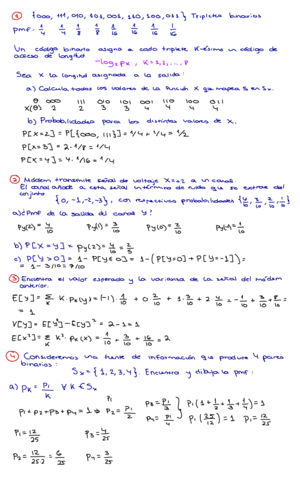 ① {000, 111, 010, 101, 001, 110, 100, 011} Tripletes binarios
pmf: 1/4 1/4 1/8 1/8 1/16 1/16 1/16 1/16
Un código binario asigna a cada triplete k-ésimo un código de acceso de longitud
-log₂ pk, k=1,2,...,8
Sea X la longitud asignada a la salida:
a) Calcula todos los valores de la función X que mapea S en Sx.
000 111 010 101 001 110 100 011
X(θ) 2 2 3 3 4 4 4 4
b) Probabilidades para los distintos valores de X.
P[X=2] = P[{000, 111}] = 1/4 + 1/4 = 1/2
P[X=3] = 2·1/8 = 1/4
P[X=4] = 4·1/16 = 1/4
② Módem transmite señal de voltaje X=+2 a un canal.
El canal añade a esta señal un término de ruido que se extrae del
conjunto {0, -1, -2, -3}, con respectivas probabilidades {4/10, 3/10, 2/10, 1/10}
a) ¿Pmf de la salida del canal Y?
Py(2) = 4/10 Py(1) = 3/10 Py(0) = 2/10 Py(-1) = 1/10
b) P[X=Y] = Py(2) = 4/10 = 2/5
c) P[Y>0] = 1 - P[Y≤0] = 1 - (P[Y=0] + P[Y=-1]) =
= 1 - 3/10 = 7/10
③ Encuentra el valor esperado y la varianza de la señal del módem
anterior.
E[Y] = Σ k·Px(Y) = (-1)·1/10 + 0·2/10 + 1·3/10 + 2·4/10 = -1/10 + 3/10 + 8/10 =
= 1
V[Y] = E[Y²] - E[Y]² = 2-1 = 1
E[X²] = Σ k²·Px(X) = 1/10 + 3/10 + 16/10 = 2
④ Consideremos una fuente de información que produce 4 pares
binarios:
Sx = {1, 2, 3, 4}. Encuentra y dibuja la pmf:
a) pk = p1/k ∀ k ∈ Sx
p1 + p2 + p3 + p4 = 1 ⇒ p2 = p1/2 p3 = p1/3 p4 = p1/4 p1(1 + 1/2 + 1/3 + 1/4) = 1
p1(25/12) = 1 p1 = 12/25
p1 = 12/25 p3 = 4/25
p2 = 12/25·2 = 6/25 p4 = 3/25